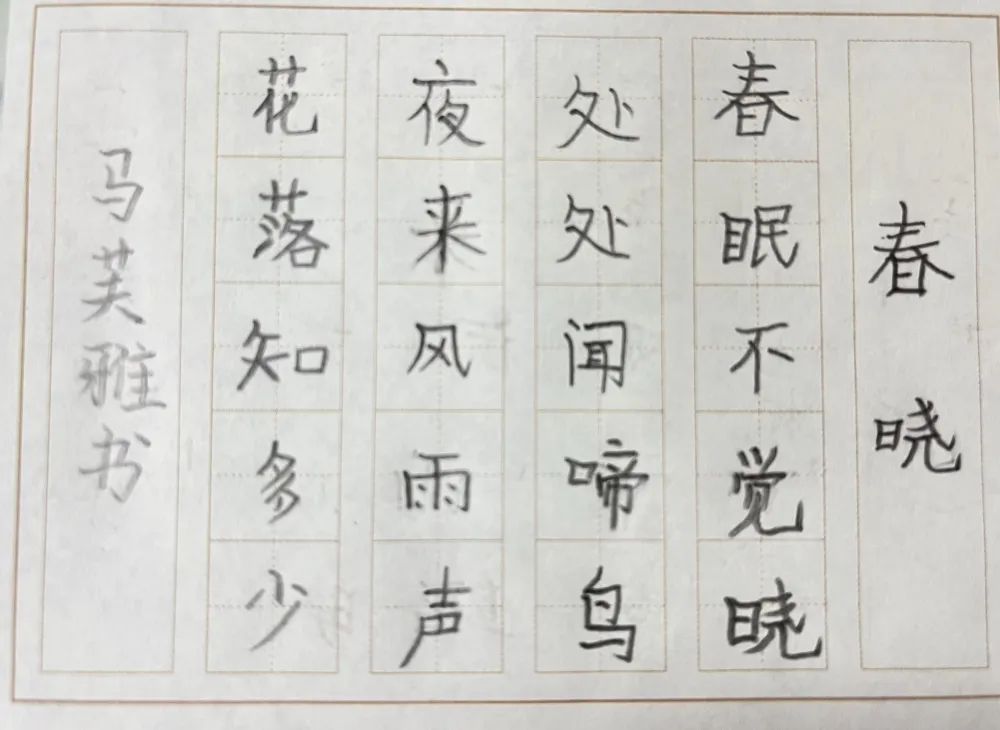 春晓
春眠不觉晓
处处闻啼鸟
夜来风雨声
花落知多少
马芙雅书